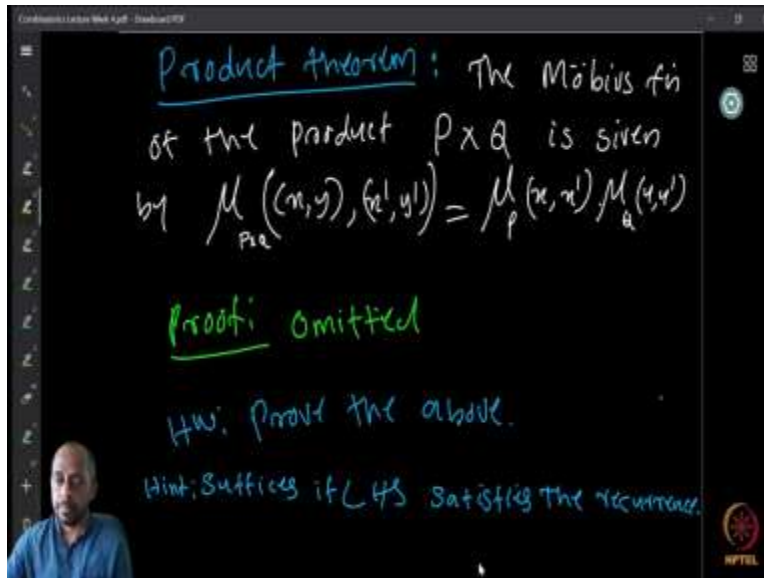 Combinatorics Lecture Week 4.pdf - Drawboard PDF
Product theorem: The Möbius fn
of the product P x Q is given
by μ_PxQ((x,y),(x',y')) = μ_P(x,x') μ_Q(y,y')
Proof: omitted
HW: Prove the above.
Hint: Suffices if LHS satisfies The recurrence.
NPTEL